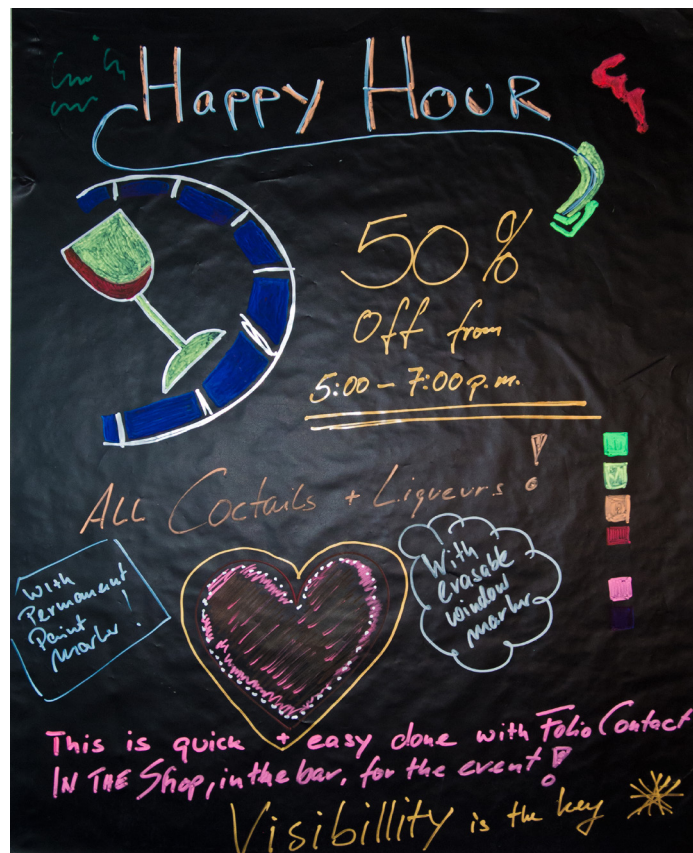 Happy Hour
50%
Off from
5:00 – 7:00 p.m.
ALL Coctails + Liqueurs !
With
Permanent
Paint
Marker!
With
erasable
window
marker
This is quick + easy done with Folio Contact
IN THE Shop, in the bar, for the event!
Visibillity is the key